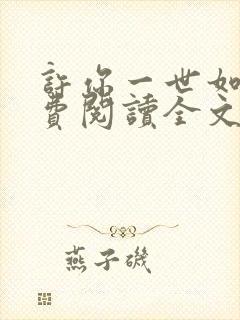 許你一世如
費閱讀全文
燕子磯